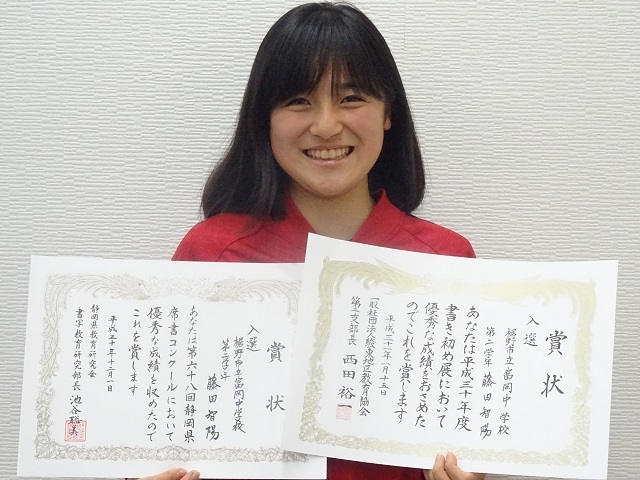 賞状
入選
裾野市立富岡中学校
第二学年 藤田智陽
あなたは第六十八回静岡県
席書コンクールにおいて
優秀な成績を収めたので
これを賞します
平成三十年十二月一日
静岡県教育研究会
書写教育研究部長 池谷聡美
賞状
入選
裾野市立富岡中 学校
第二学年 藤田智陽
あなたは平成三十年度
書き初め展において
優秀な成績をおさめた
のでこれを賞します
平成三十一年二月十五日
一般社団法人駿東地区教育協会
第二支部長 西田裕一